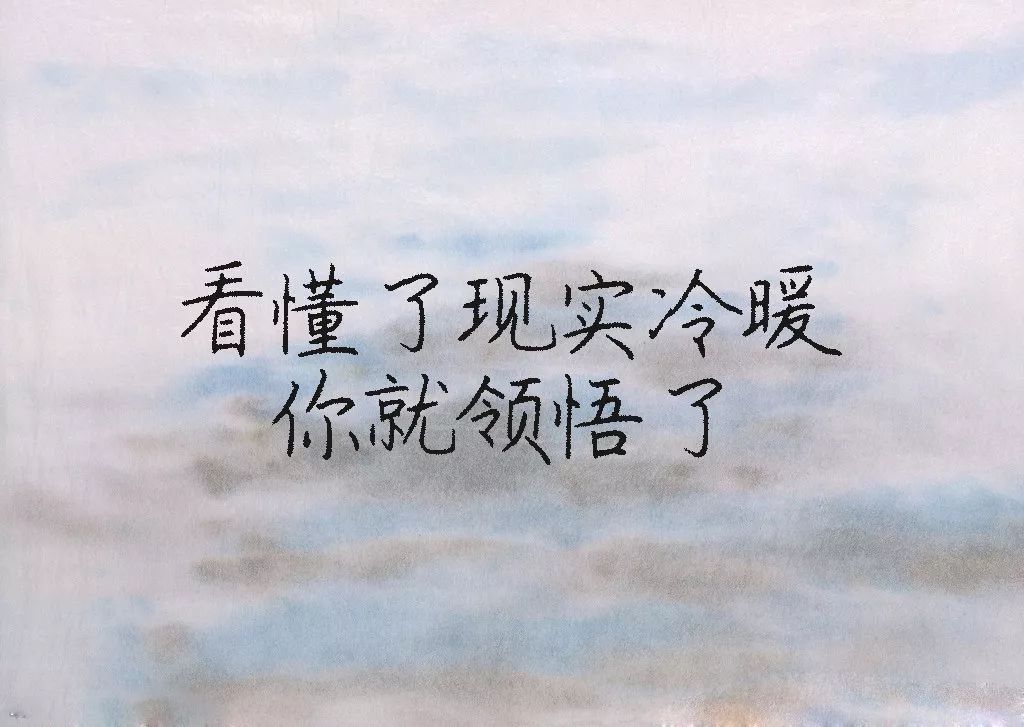 看懂了现实冷暖
你就领悟了